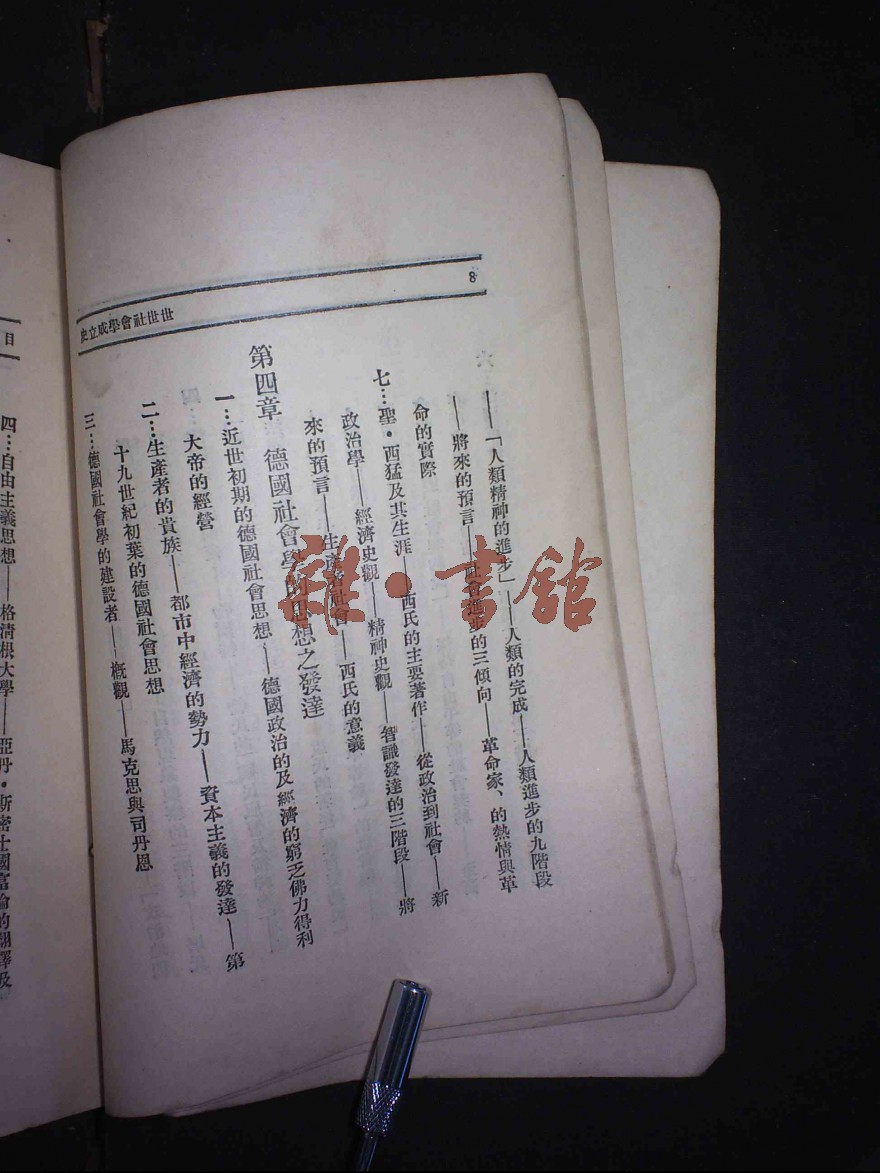 8
世世社會學成立史
——「人類精神的進步」——人類的完成——人類進步的九階段
——將來的預言——社會進步的三傾向——革命家、的熱情與革
命的實際
七…聖·西猛及其生涯——西氏的主要著作——從政治到社會——新
政治學——經濟史觀——精神史觀——智識發達的三階段——將
來的預言——生產者社會——西氏的意義
第四章 德國社會學的思想之發達
一…近世初期的德國社會思想——德國政治的及經濟的窮乏佛力得利
大帝的經營
二…生產者的貴族——都市中經濟的勢力——資本主義的發達——第
十九世紀初葉的德國社會思想
三…德國社會學的建設者——概觀——馬克思與司丹恩
目
四…自由主義思想——格清根大學——亞丹·斯密士國富論的翻譯及
雜·書館